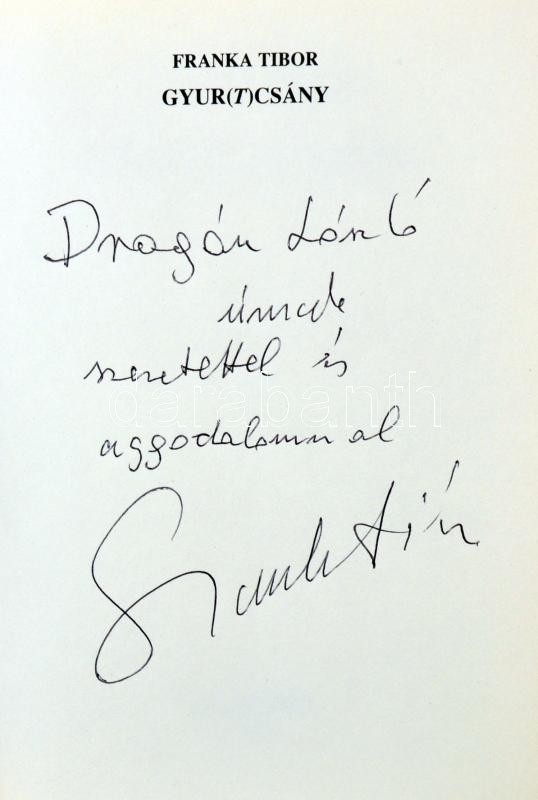 FRANKA TIBOR
GYUR(T)CSÁNY
Dragán László
úrnak
szeretettel és
darabanth
aggodalommal